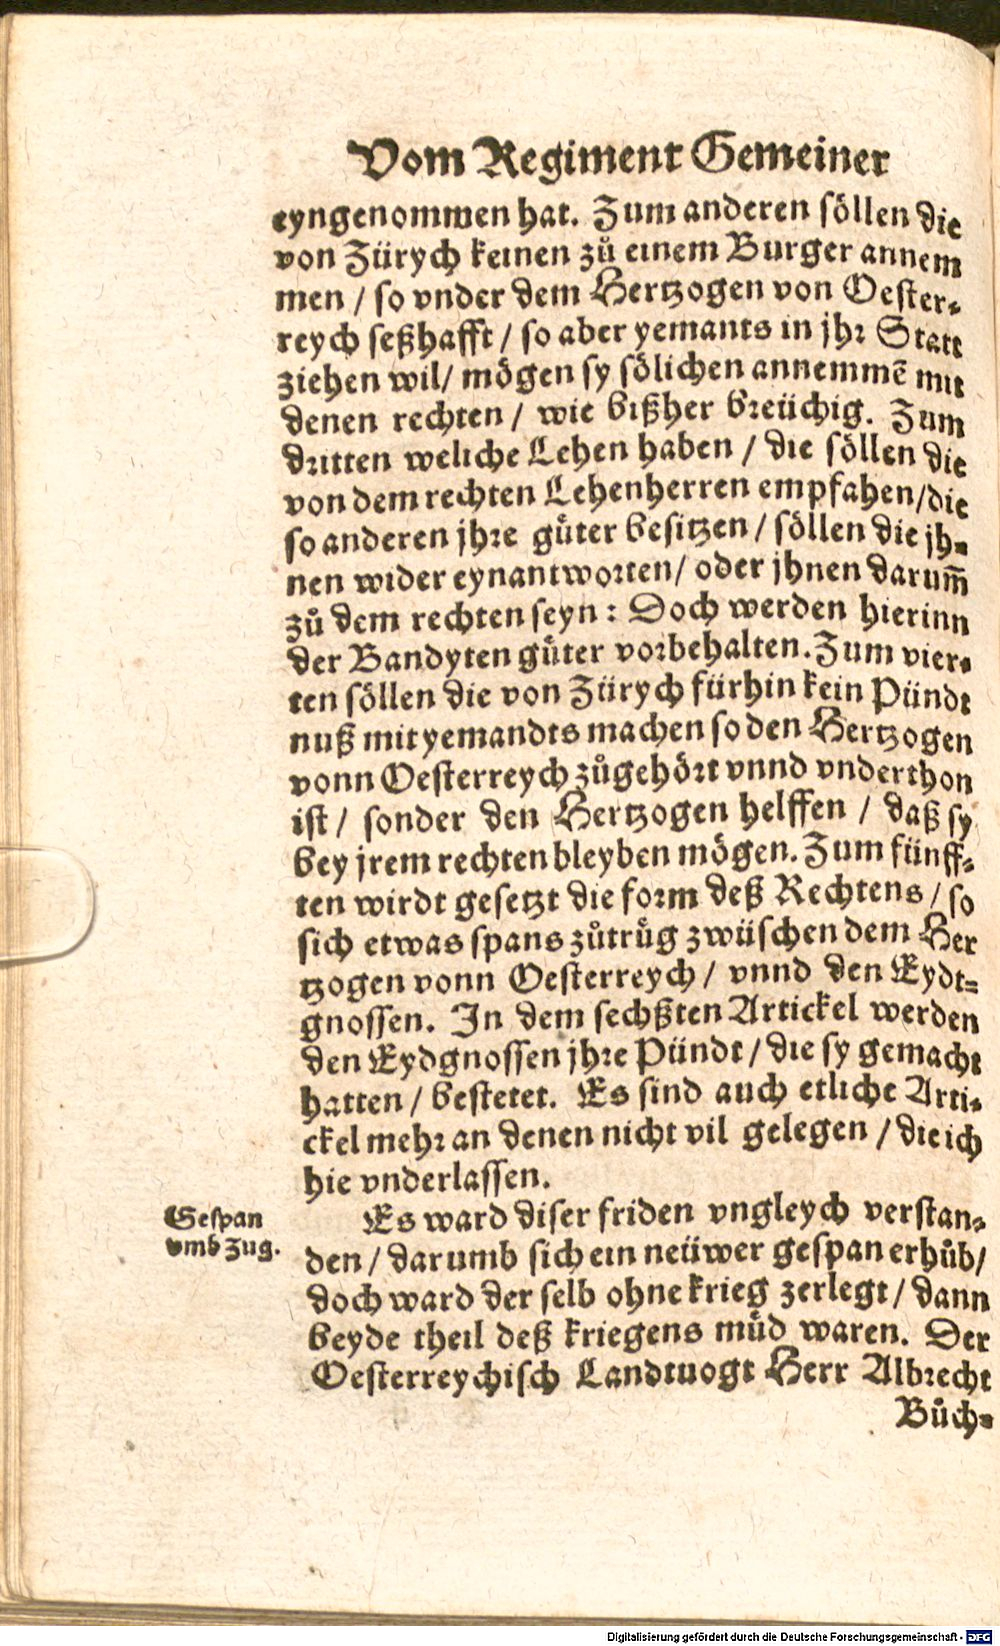 Vom Regiment Gemeiner
eyngenommen hat. Zum anderen söllen die
von Zürych keinen zů einem Burger annem
men / so vnder dem Hertzogen von Oester-
reych seßhafft / so aber yemants in jhr Statt
ziehen wil / mögen sy sölichen annemmē mit
denen rechten / wie bißher breüchig. Zum
dritten weliche Lehen haben / die söllen die
von dem rechten Lehenherren empfahen / die
so anderen jhre güter besitzen / söllen die jh-
nen wider eynantworten / oder jhnen darum̄
zů dem rechten seyn : Doch werden hierinn
der Bandyten güter vorbehalten. Zum vier-
ten söllen die von Zürych fürhin kein Pündt
nuß mit yemandts machen so den Hertzogen
vonn Oesterreych zůgehört vnnd vnderthon
ist / sonder den Hertzogen helffen / daß sy
bey jrem rechten bleyben mögen. Zum fünff-
ten wirdt gesetzt die form deß Rechtens / so
sich etwas spans zůtrüg zwüschen dem Her
tzogen vonn Oesterreych / vnnd den Eydt-
gnossen. In dem sechßten Artickel werden
den Eydgnossen jhre Pündt / die sy gemacht
hatten / bestetet. Es sind auch etliche Arti-
ckel mehr an denen nicht vil gelegen / die ich
hie vnderlassen.
Gespan
vmb Zug.
Es ward diser friden vngleych verstan-
den / darumb sich ein neüwer gespan erhůb /
doch ward der selb ohne krieg zerlegt / dann
beyde theil deß kriegens müd waren. Der
Oesterreychisch Landtuogt Herr Albrecht
Bůch-
Digitalisierung gefördert durch die Deutsche Forschungsgemeinschaft - DFG